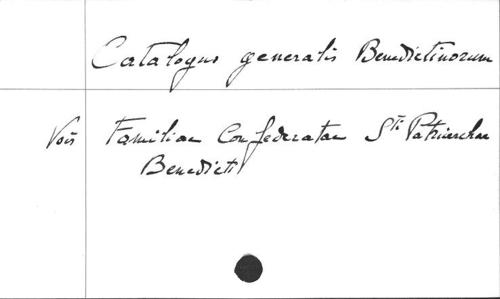 Catalogus generalis Benedictinorum
Voir Familiae Confederatae Sti Patriarchae
Benedicti